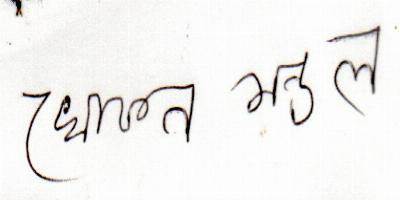 খোকন মন্ডল